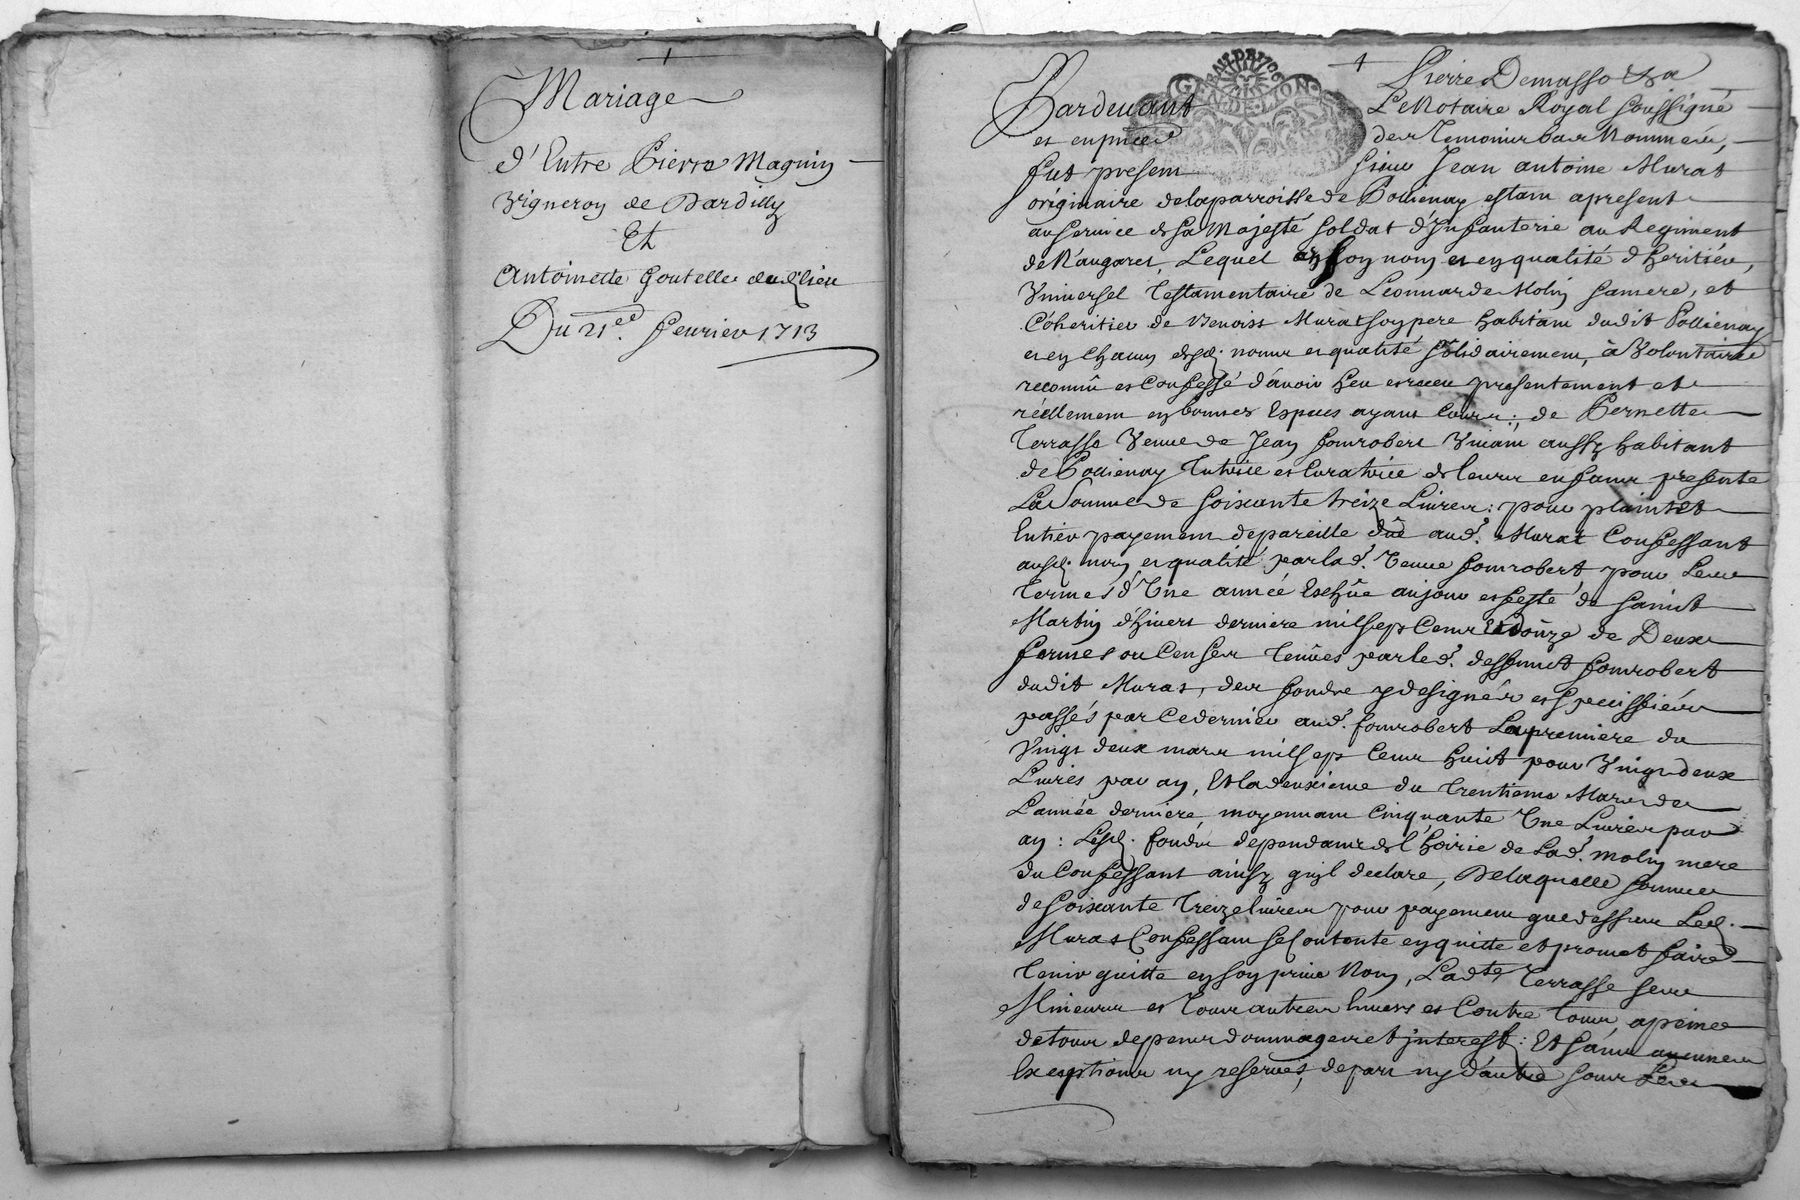 Mariage
d'Entre Pierre Magnin
Vigneron de Dardilly
Et
Antoinette Goutelle dudlieu
Du 21ee. feurier 1713
Pierre Demasso &a
GENAL DE LYON
Pardeuant Le Notaire Royal soussigné
et en pnce des Temoins bas Nommez,
fut present sieur Jean antoine Murat
originaire de la parroisse de Pollienay estant apresent
au seruice de sa Majesté soldat d'Infanterie au Regiment
de Lequel en son nom et en qualité d'heritier,
Vniuersel Testamentaire de Leonnarde Molin sa mere, et
Coheritier de Benoist Murat son pere habitant dudit Pollienay
et en chacun desd. noms et qualité solidairement, à Volontairet
reconnû et Confessé d'auoir heu et receu presentement et
réellement en bonnes Especes ayant Cours; de Pernette
Terrasse Veuue de Jean fonrobert Viuant aussy habitant
de Pollienay Tutrice et Curatrice de leurs enfans presente
La Somme de soixante treize Liures: pour plain et
Entier payement de pareille dûe aud. Murat Confessant
ausd. nom et qualité par lad. Veuue fonrobert, pour Le
Terme d'Vne année Eschûe au jour et feste de saint
Martin d'hiuers derniere mil sept Cent Et douze de Deux
fermes ou Censes Tenûes par led. deffunct fonrobert
dudit Murat, des fonds y designés et speciffiés
passés par Ce dernier aud. fonrobert La premiere du
Vingt deux mars mil sept Cent huict pour Vingt deux
Liures par an, Et la deuxieme du Trentieme Mars de
L'année derniere, moyennant Cinquante Vne Liures par
an: Lesd. fonds dependants de l'hoirie de Lad. Molin mere
du Confessant ainsy qu'il déclare, De laquelle somme
de soixante Treize liures pour payement que dessus Led.
Murat Confessant se Contente en quitte et promet faire
Tenir quitte en son priué Nom, Ladte Terrasse ses
Mineurs et Tous autres Enuers et Contre Tous, apeine
de Tous depens dommages et interest: Et sans aucunes
Exceptions ny reserues, de part ny d'autre sous Les